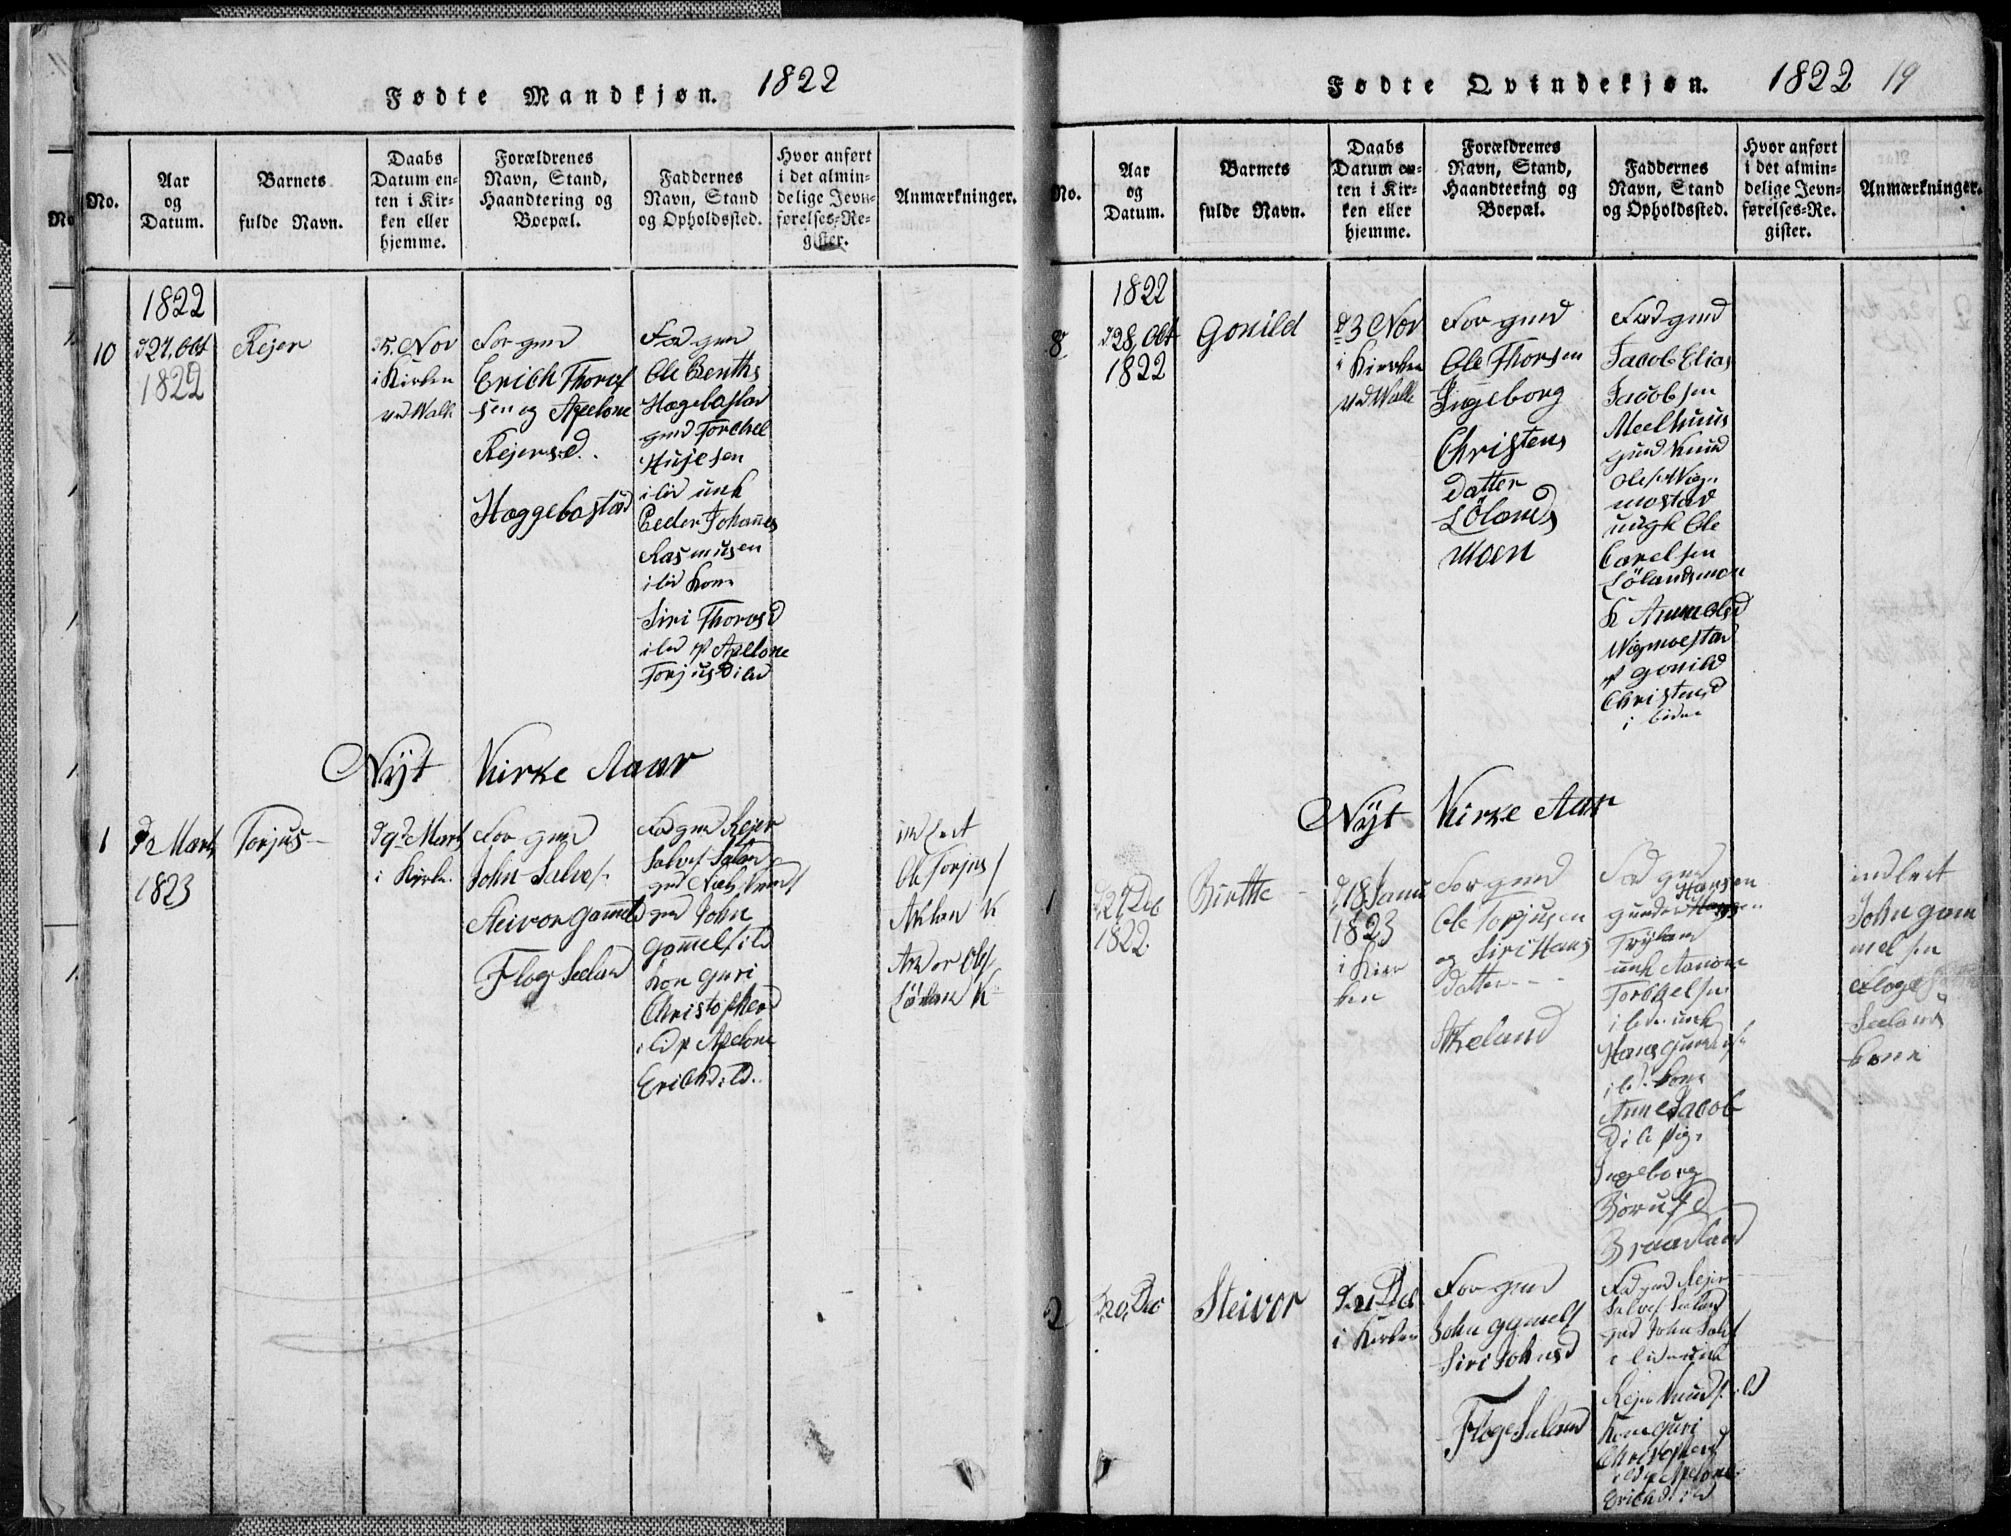 Fødte Mandkjøn. 1822
No.
Aar
og
Datum.
Barnets
fulde Navn.
Daabs
Datum en-
ten i Kir-
ken eller
hjemme.
Forældrenes
Navn, Stand,
Haandtering og
Boepæl.
Faddernes
Navn, Stand
og Opholdssted.
Hvor anført
i det almin-
delige Jevn-
førelses-Re-
gister.
Anmærkninger.
1822
10
27. Oct
1822
Rejer
5. Nov
i Kirken
ved Walle
For gmd
Erich Thoras
sen og Apelone
Rejersd.
Hæggebostad
Fad gmd
Ole Benths
Hægebostad
gmd Torchel
sen
ibd unk
Peder Johannes
Rasmusen
ibd kone
Siri Thorasd
ibd p Apelone
Torjusd ibd
Nÿt Kirke Aaar
1
Marts
1823
Torjus
9 Marts
i Kirke.
For gmd
John Salves.
Steivor Gamels
Floge Seeland
Fad gmd Rejer
Salves Seland
gmd
gmd John
Gamels ibd
kon Guri
Christophersd
ibd p Apelone
Erichsd ibd.
indlest
Ole Torjus
K
Ols
K
Fødte Qvindekjøn. 1822 19
No.
Aar
og
Datum.
Barnets
fulde Navn.
Daabs
Datum en-
ten i Kir-
ken eller
hjemme.
Forældrenes
Navn, Stand,
Haandtering og
Boepæl.
Faddernes
Navn, Stand
og Opholdssted.
Hvor anført
i det almin-
delige Jevn-
førelses-Re-
gister.
Anmærkninger.
1822
8
28. Oct
1822
Gonild
3 Nov
i Kirken
ved Walle
For gmd
Ole Thorsen
Ingeborg
Christens
datter
Lölands
moen
Fad gmd
Jacob Elias
Jacobsen
Meelhuus
gmd Knud
Oles Vig-
mostad
ungk Ole
Carelsen
Lölandsmoen
K Anne Olsd
Vigmostad
p Gonild
Christensd
i bidm
Nÿt Kirke Aar
1
27 Deb
1822
Birthe
18 Janu
1823
i Kir
ken
For gmd
Ole Torjusen
og Siri Hans
datter
Aheland
Fad gmd
Hansen
Gunder
Trÿland
unk Aanon
Torkelsen
ibd. unk
Hans
ibd. kone
Anne Jacob
D ib pig.
Ingeborg
d
Braadland
indlest
John Gam
melsen
Floge
Seeland
kone
2
20 Deb
Steivor
21 Deb
i Kirken
For gmd
John Gamels
Siri Johnsd
Floge Seland
Fad gmd Rejer
Salves Seeland
gmd John Salv
ibd unk
Rejer Knuds ibd
Kone Guri
Christophersd
ibd p Apelone
Erichsd ibd